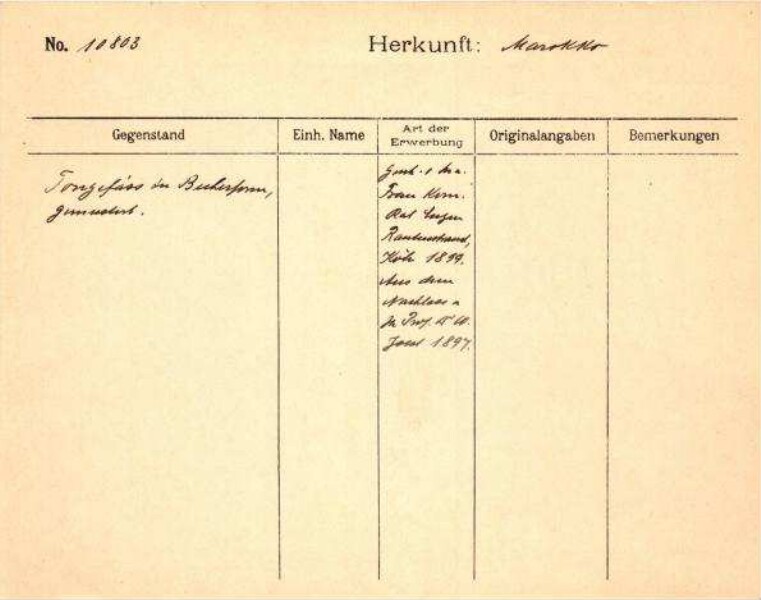 No. 10803
Herkunft: Marokko
Gegenstand
Einh. Name
Art der
Erwerbung
Originalangaben
Bemerkungen
Tongefäss in Becherform,
gemustert.
Gesch.
Frau Kom.
Rat Eugen
Rautenstrauch,
Köln 1899.
Aus dem
Nachlass
Prof. W.
Joest 1897.